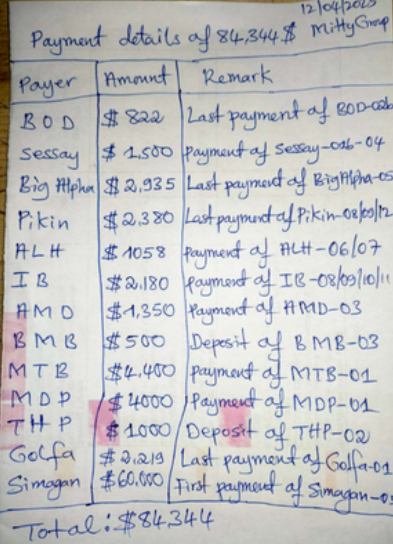 12/04/2025
Payment details of 84,344$ MittyGroup
Payer Amount Remark
BOD $822 Last payment of BOD-02b
Sessay $1,500 Payment of Sessay-02b-04
Big Alpha $2,935 Last payment of BigAlpha-05
Pikin $2,380 Last payment of Pikin-08/09/12
ALH $1058 Payment of ALH-06/07
IB $2,180 Payment of IB-08/09/10/11
AMD $1,350 Payment of AMD-03
BMB $500 Deposit of BMB-03
MTB $4,400 Payment of MTB-01
MDP $4000 Payment of MDP-01
THP $1000 Deposit of THP-02
Golfa $2,219 Last payment of Golfa-01
Simagan $60,000 First payment of Simagan-0
Total: $84,344